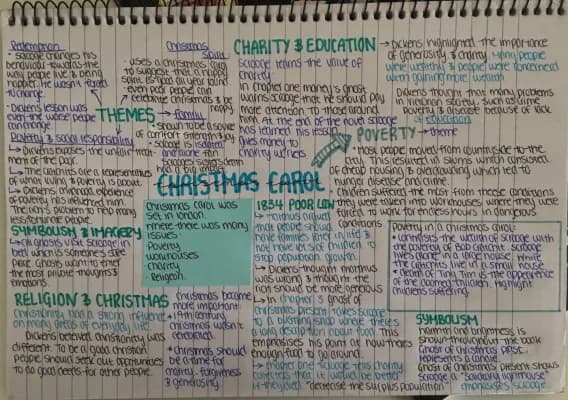 Redemption
· scrooge changes his
behaviour towards the
way people live & being
happier. He wasn't forced
to change.
· Dickens lesson was
even the worst people
can change.
THEMES
Christmas
Spirit
· uses a Christmas song
to suggest that a happy
spirit is good all year round
· even poor people can
celebrate christmas & be
happy
→ Family
· shown to be a source
of comfort strength & joy
· scrooge is isolated
and alone
Poverty & social responsibility
→ Dickens exposes the unfair treat-
ment of the poor.
→ The cratchits are a representatives
of what living in poverty is about.
→ Dickens childhood experience
of poverty has influenced him.
less fortunate people.
CHARITY & EDUCATION
Scrooge learns the value of
charity
In chapter one marley's ghost
warns scrooge that he should pay
more attention to those around
him. At the end of the novel scrooge
has learned his lesson
gives money to
charity workers
→ Dickens highlighted the importance
of generosity & charity. Many people
were wealthy & people were concerned
when gaining more wealth
Dickens thought that many problems
in victorian society, such as crime
poverty & disease because of lack
of education
POVERTY → theme
· most people moved from countryside to the
city. This resulted in slums which consisted
of cheap housing & overcrowding which led to
hunger disease and crime
· children suffered the most from these conditions
they were taken into workhouses where they were
forced to work for endless hours in dangerous
conditions
CHRISTMAS CAROL
Christmas carol was
set in london.
where there was many
issues:
· Poverty
· workhouses
· charity
· Religion.
1834 POOR LAW
→ malthus argued
that people should
have families later in life &
not have lots of children to
stop population growth.
→ Dickens thought malthus
was wrong & thought
should be more generous
→ In chapter 3 ghost of
christmas present takes scrooge
to a bustling shop where there's
a long description about food. This
emphasises his point of how there's
enough food to go around.
"decrease the surplus population"
SYMBOLISM & IMAGERY
· All ghosts visit scrooge in
bed which is someone's safe
place. Ghosts want to enter
the most private thoughts &
emotions.
RELIGION & CHRISTMAS
Christianity had a strong influence
on many areas of everyday life.
Dickens believed christianity was
different. To be a good christian
people should seek out opportunities
to do good deeds for other people.
· Christmas became
more important
· 19th century
christmas wasn't
celebrated
· christmas should
be a time for
charity, forgiveness
& generosity.
Poverty in a christmas carol:
· contrasts the wealth of scrooge with
the poverty of Bob cratchit. Scrooge
lives alone in a large house. While
the cratchits live in a small house
· death of tiny tim & the appearance
of the doomed children highlight
childrens suffering.
SYMBOLISM
warmth and brightness is
shown throughout the book
Ghost of christmas past.
represents a candle.
Ghost of Christmas present shows
scrooge a "solitary lighthouse"
emphasises scrooge